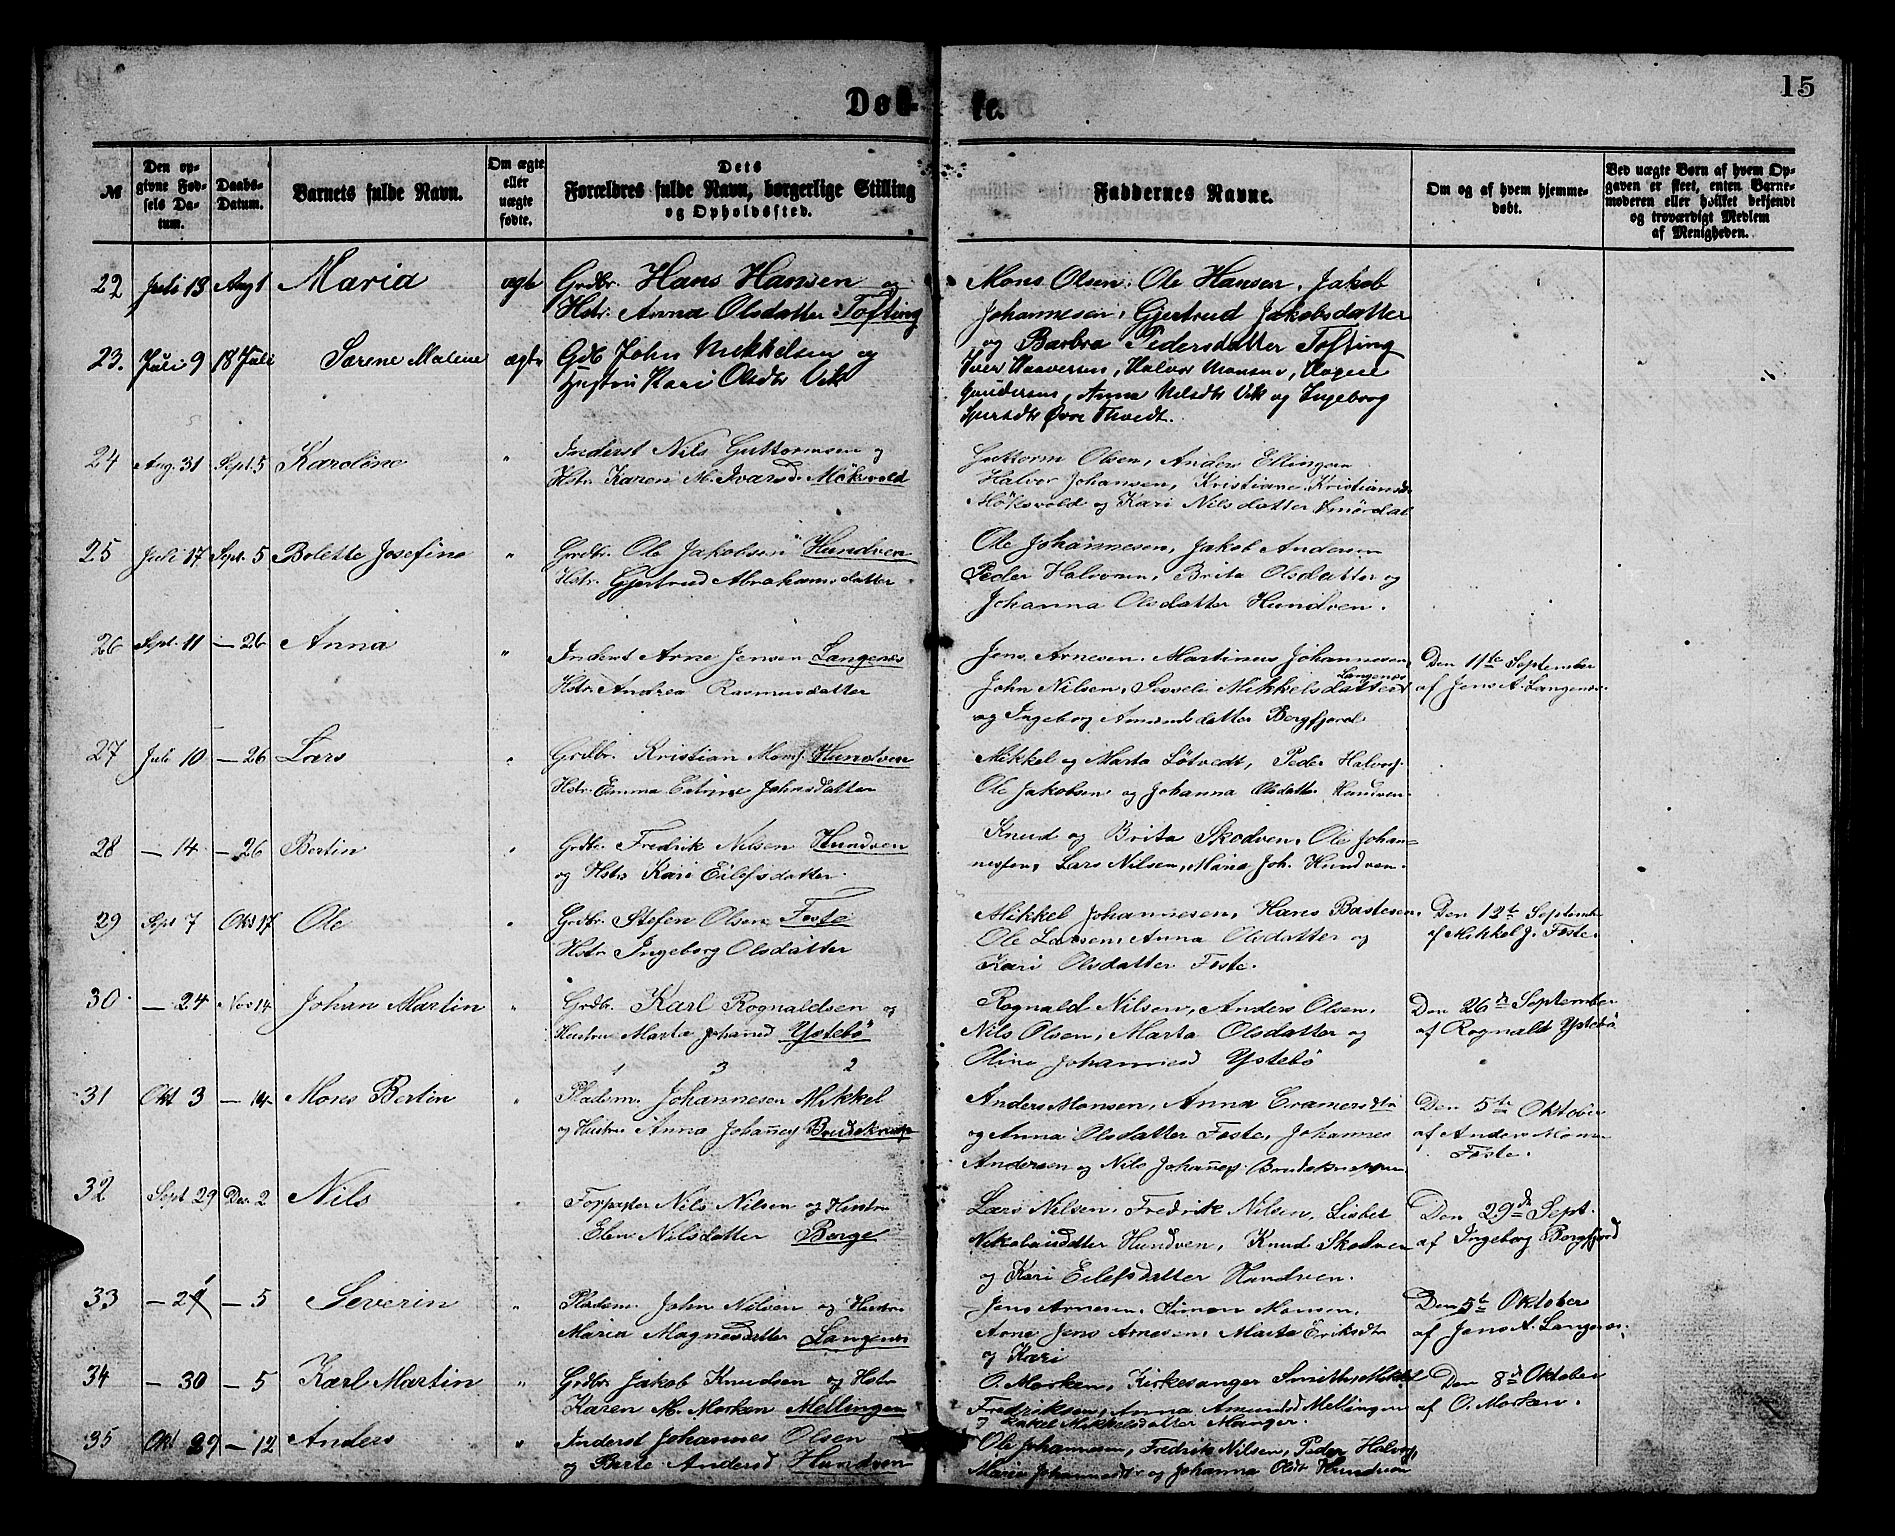 15
Døb- te.
№
Den opgivne Fødsels Datum.
Daabs-Datum.
Barnets fulde Navn.
Om ægte eller uægte fødte.
Dets Forældres fulde Navn, borgerlige Stilling og Opholdssted.
Faddernes Navne.
Om og af hvem hjemmedøbt.
Ved uægte Børn af hvem Opgaven er skeet, enten Barnemoderen eller hvilket bekjendt og troværdigt Medlem af Menigheden.
22 Juli 13 Aug 1 Maria ægte Grdbr. Hans Hansen og Mons Olsen, Ole Hansen, Jakob
Hstr. Anna Olsdatter Tofting Johannesen, Gjertrud Jakobsdatter
og Barbra Pedersdatter Tofting
23. Juli 9 18 Juli Sørene Malene ægte Gdb John Mekkelsen og
Hustru Kari Olsdtr Vik Halvor Monsen,
Anna Nilsdtr Vik og Ingeborg
Øvre Tvedt.
24 Aug. 31 Sept. 5 Karoline " Inderst Nils Guttormsen og Guttorm Olsen, Anders Ellingsen
Hstr. Karen M. Ivarsd. Mökevold Halvor Johansen, Kristiane Kristiansdr
Mökevold og Kari Nilsdatter Smørdal
25 Juli 17 Sept. 5 Bolette Josefine " Grdbr. Ole Jakobsen Hundven Ole Johannesen, Jakob Andersen
Hstr. Gjertrud Abrahamsdatter Peder Halvorsen, Brita Olsdatter og
Johanna Olsdatter Hundven.
26 Sept. 11 — 26 Anna " Inderst Arne Jensen Langenes Jens Arnesen, Martinus Johannesen, Den 11te September
Hstr. Andrea Rasmusdatter John Nilsen, Sessele Mikkelsdatter Langenes af Jens A. Langenes.
og Ingeborg Amundsdatter Bergfjord
27 Juli 10 — 26 Lars " Grdbr. Kristian Mons. Hundven Mikkel og Marta Låtvedt, Peder Halvors.
Hstr. Emma Catrine Johnsdatter Ole Jakobsen og Johanna Olsdatter Hundven.
28 — 14 — 26 Bertin " Grdbr. Fredrik Nilsen Hundven Knud og Brita Skodven, Ole Johan=
og Hstr. Kari Eilefsdatter. nesen, Lars Nilsen, Maria Joh. Hundven.
29 Sept 7 Okt 17 Ole " Grdbr. Stefen Olsen Feste Mikkel Johannesen, Hans Bastesen, Den 12te September
Hstr. Ingeborg Olsdatter Ole Larsen, Anna Olsdatter og af Mikkel J. Feste.
Kari Olsdatter Feste.
30 — 24 Nov 14 Johan Martin " Grdbr. Karl Rognaldsen og Rognald Nilsen, Anders Olsen, Den 26de September
Hustru Marta Johannesd Ystebö Nils Olsen, Marta Olsdatter og af Rognald Ystebö
Olina Johannesd Ystebö
1 3 2
31 Okt 3 — 14 Mons Bertin " Pladsm. Johannesen Mikkel Anders Monsen, Anna Cramersdtr Den 5te Oktober
og Hustru Anna Johannes Brudeknap og Anna Olsdatter Feste, Johannes af Anders Monsen
Andersen og Nils Johannes. Brudeknappen Feste.
32 Sept 29 Des. 2 Nils " Forpagter Nils Nilsen og Hustru Lars Nilsen, Fredrik Nilsen, Lisbet Den 29de Sept.
Elen Nilsdatter Borge Nikolaisdatter Hundven, Knud Skodven af Ingeborg Borgfjord
og Kari Eilefsdatter Hundven.
33 — 24 — 5 Severin " Pladsm. John Nilsen og Hustru Jens Arnesen, Simon Monsen, Den 5te Oktober
Maria Magnesdatter Langenes Arne Jens Arnesen, Marta Eriksdtr af Jens A. Langenes.
og Kari
34 — 30 — 5 Karl Martin " Grdbr Jakob Knudsen og Hstr O. Morken, Kirkesanger Smith, Mikkel Den 8de Oktober
Karen M. Morken Mellingen Fredriksen, Anna Amundsd Mellingen af O. Morken.
og Rakel Mikkelsdatter Manger.
35 Okt 29 — 12 Anders " Inderst Johannes Olsen Ole Johannesen, Fredrik Nilsen, Peder Halvors
og Berte Andersd Hundven Maria Johannesdtr og Johanna Olsdtr Hundven